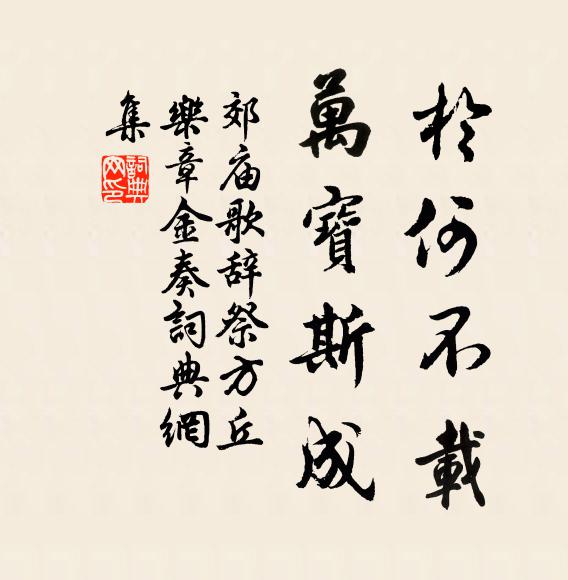 於何不載
萬寶斯成
郊庙歌辞祭方丘
樂章金奏詞典網
集
詞典
网印